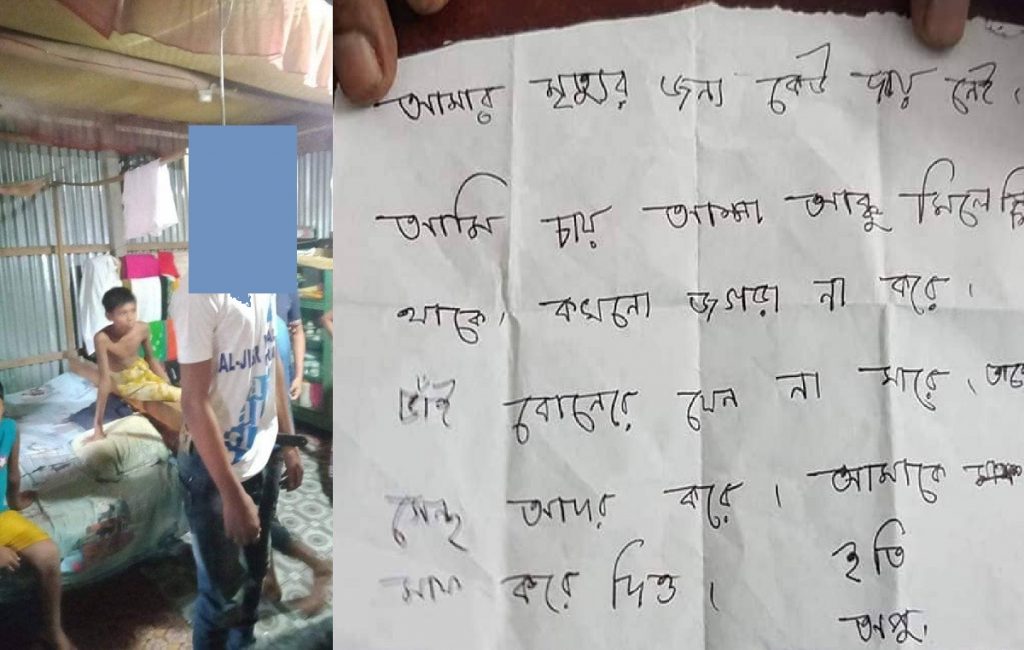 AL-JI
আমার মৃত্যুর জন্য কেউ দায় নেই।
আমি চায় আম্মা আব্বু মিলে মি
থাকে। কখনো জগরা না করে।
ভাই বোনেরে যেন না মারে। তাদে
আদর করে। আমাকে
মাপ করে দিও।
ইতি
অপু।